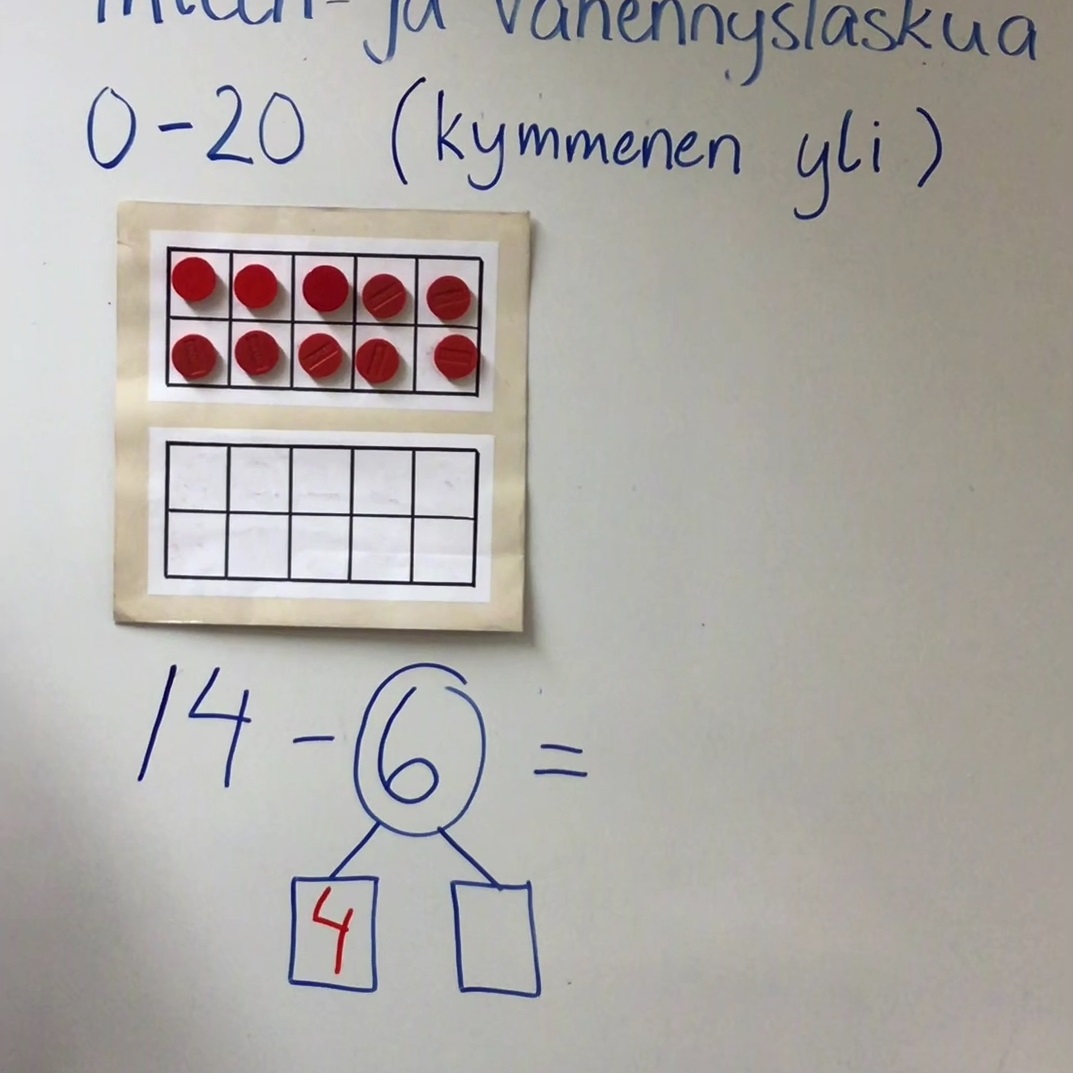 ja vähennyslaskua
0-20 (kymmenen yli)
14 - 6 =
4